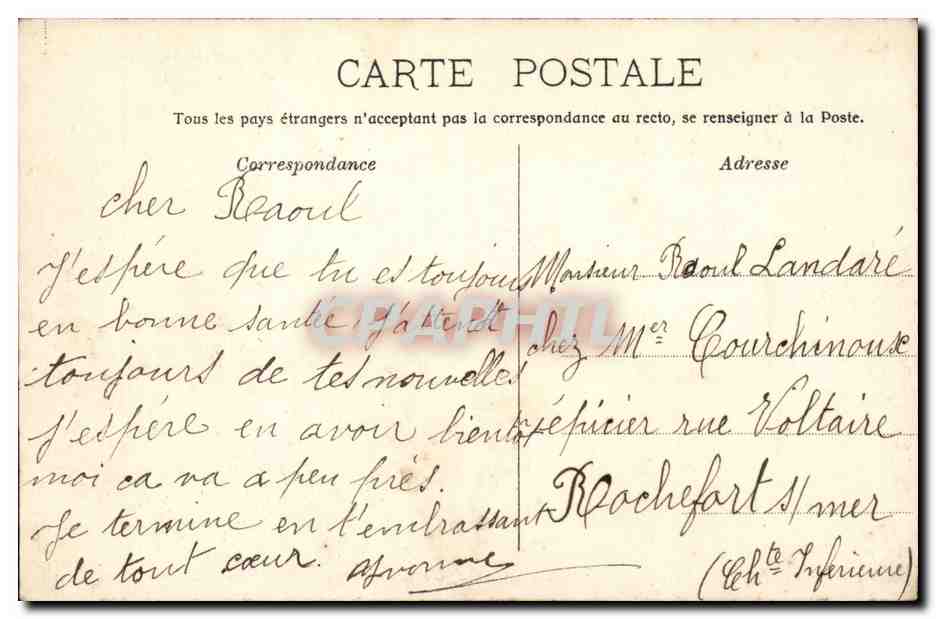 CARTE POSTALE
Tous les pays étrangers n'acceptent pas la correspondance au recto, se renseigner à la Poste.
Correspondance
cher Raoul
J'espére que tu es toujours
en bonne santée, j'attends
toujours de tes nouvelles
j'espére en avoir bientôt
moi ca va a peu près.
Je termine en t'embrassant
de tout cœur. Yvonne
Adresse
Monsieur Raoul Landaré
chez Mer Courchinoux
épicier rue Voltaire
Rochefort s/mer
(Chte Inférieure)
CPAPHIL